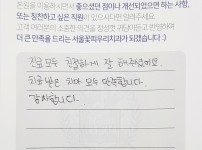 본원을 이용하시면서 좋으셨던 점이나 개선되었으면 하는 사항,
또는 칭찬하고 싶은 직원이 있으시다면 알려주세요.
고객 여러분의 소중한 의견을 정성껏 귀담아듣고 반영하여
더 큰 만족을 드리는 서울꽃피우리치과가 되겠습니다 :)
진료 모두 친절하게 잘 해주셨어요.
치료 받은 치아 모두 만족합니다.
감사합니다.